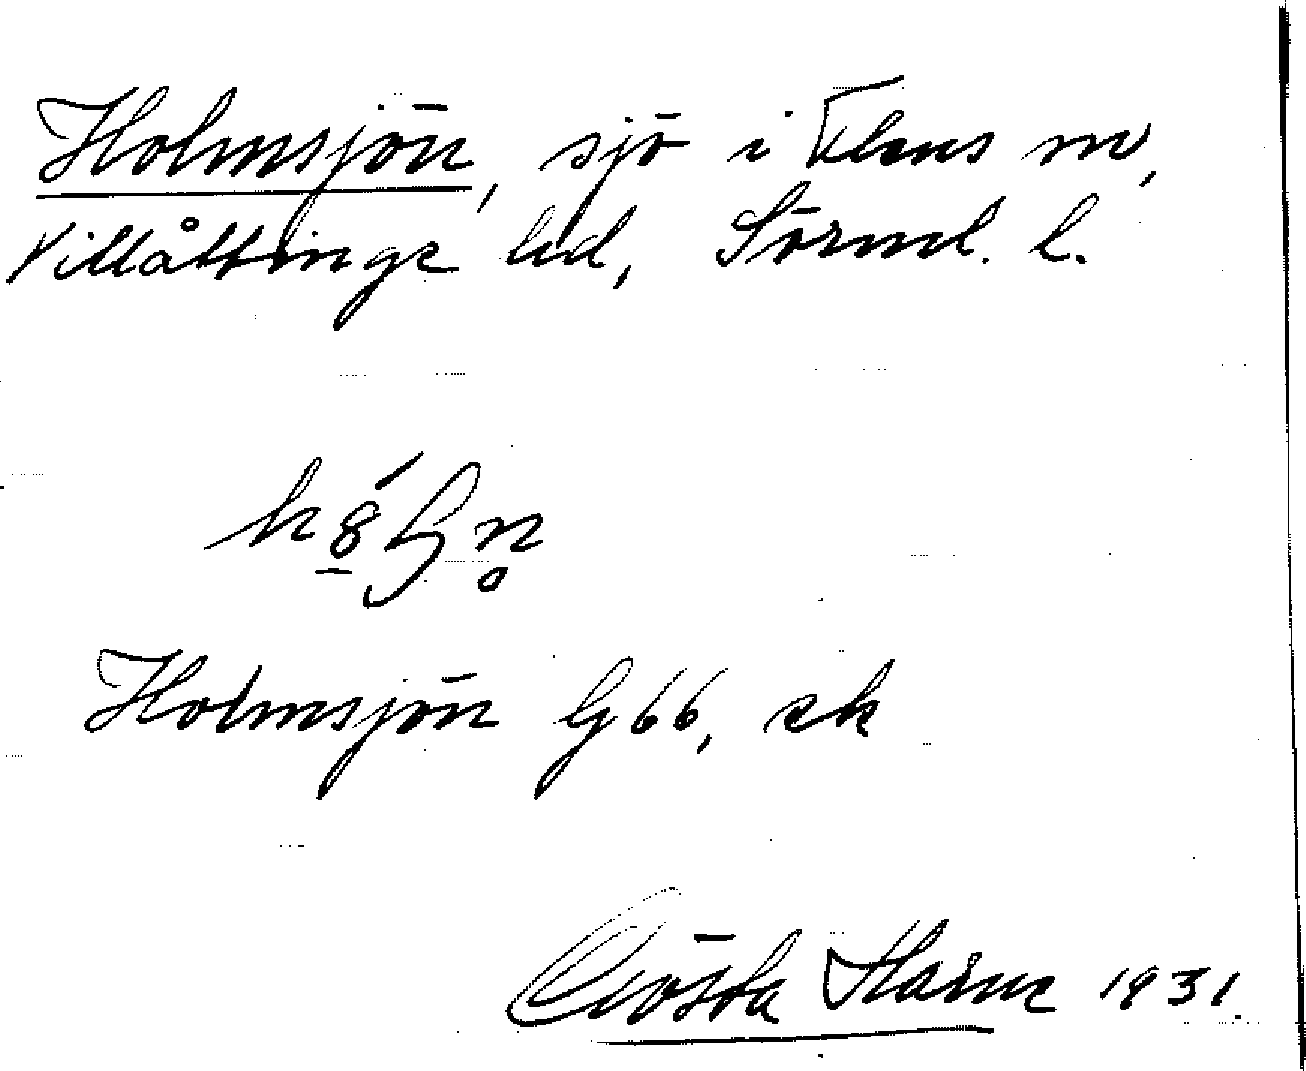 Holmsjön, sjö i Flens sn,
Villåttinge hd, Sörml. l.
Holmsjön G66, ek
Gösta Harne 1931